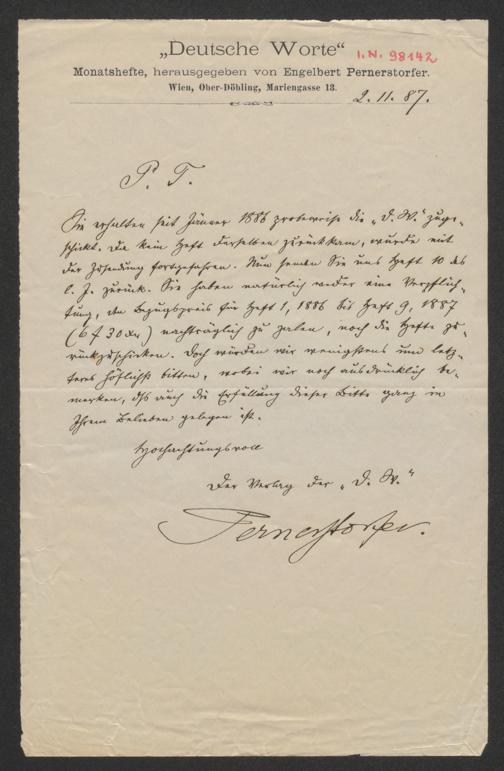 „Deutsche Worte“
I.N. 98142
Monatshefte, herausgegeben von Engelbert Pernerstorfer.
Wien, Ober-Döbling, Mariengasse 13.
2. 11. 87.
P. T.
Sie erhalten seit Jänner 1886 probeweise die „D. W.“ zuge-
schickt. Da kein Heft derselben zurückkam, wurde mit
der Zusendung fortgefahren. Nun senden Sie uns Heft 10 des
l. J. zurück. Sie haben natürlich weder eine Verpflich-
tung, den Bezugspreis für Heft 1, 1886 bis Heft 9, 1887
(6 f 30 kr) nachträglich zu zalen, noch die Hefte zu-
rückzuschicken. Doch würden wir wenigstens um letz-
teres höflichst bitten, wobei wir noch ausdrücklich be-
merken, dß auch die Erfüllung dieser Bitte ganz in
Ihrem Belieben gelegen ist.
Hochachtungsvoll
Der Verlag der „D. W.“
Pernerstorfer.